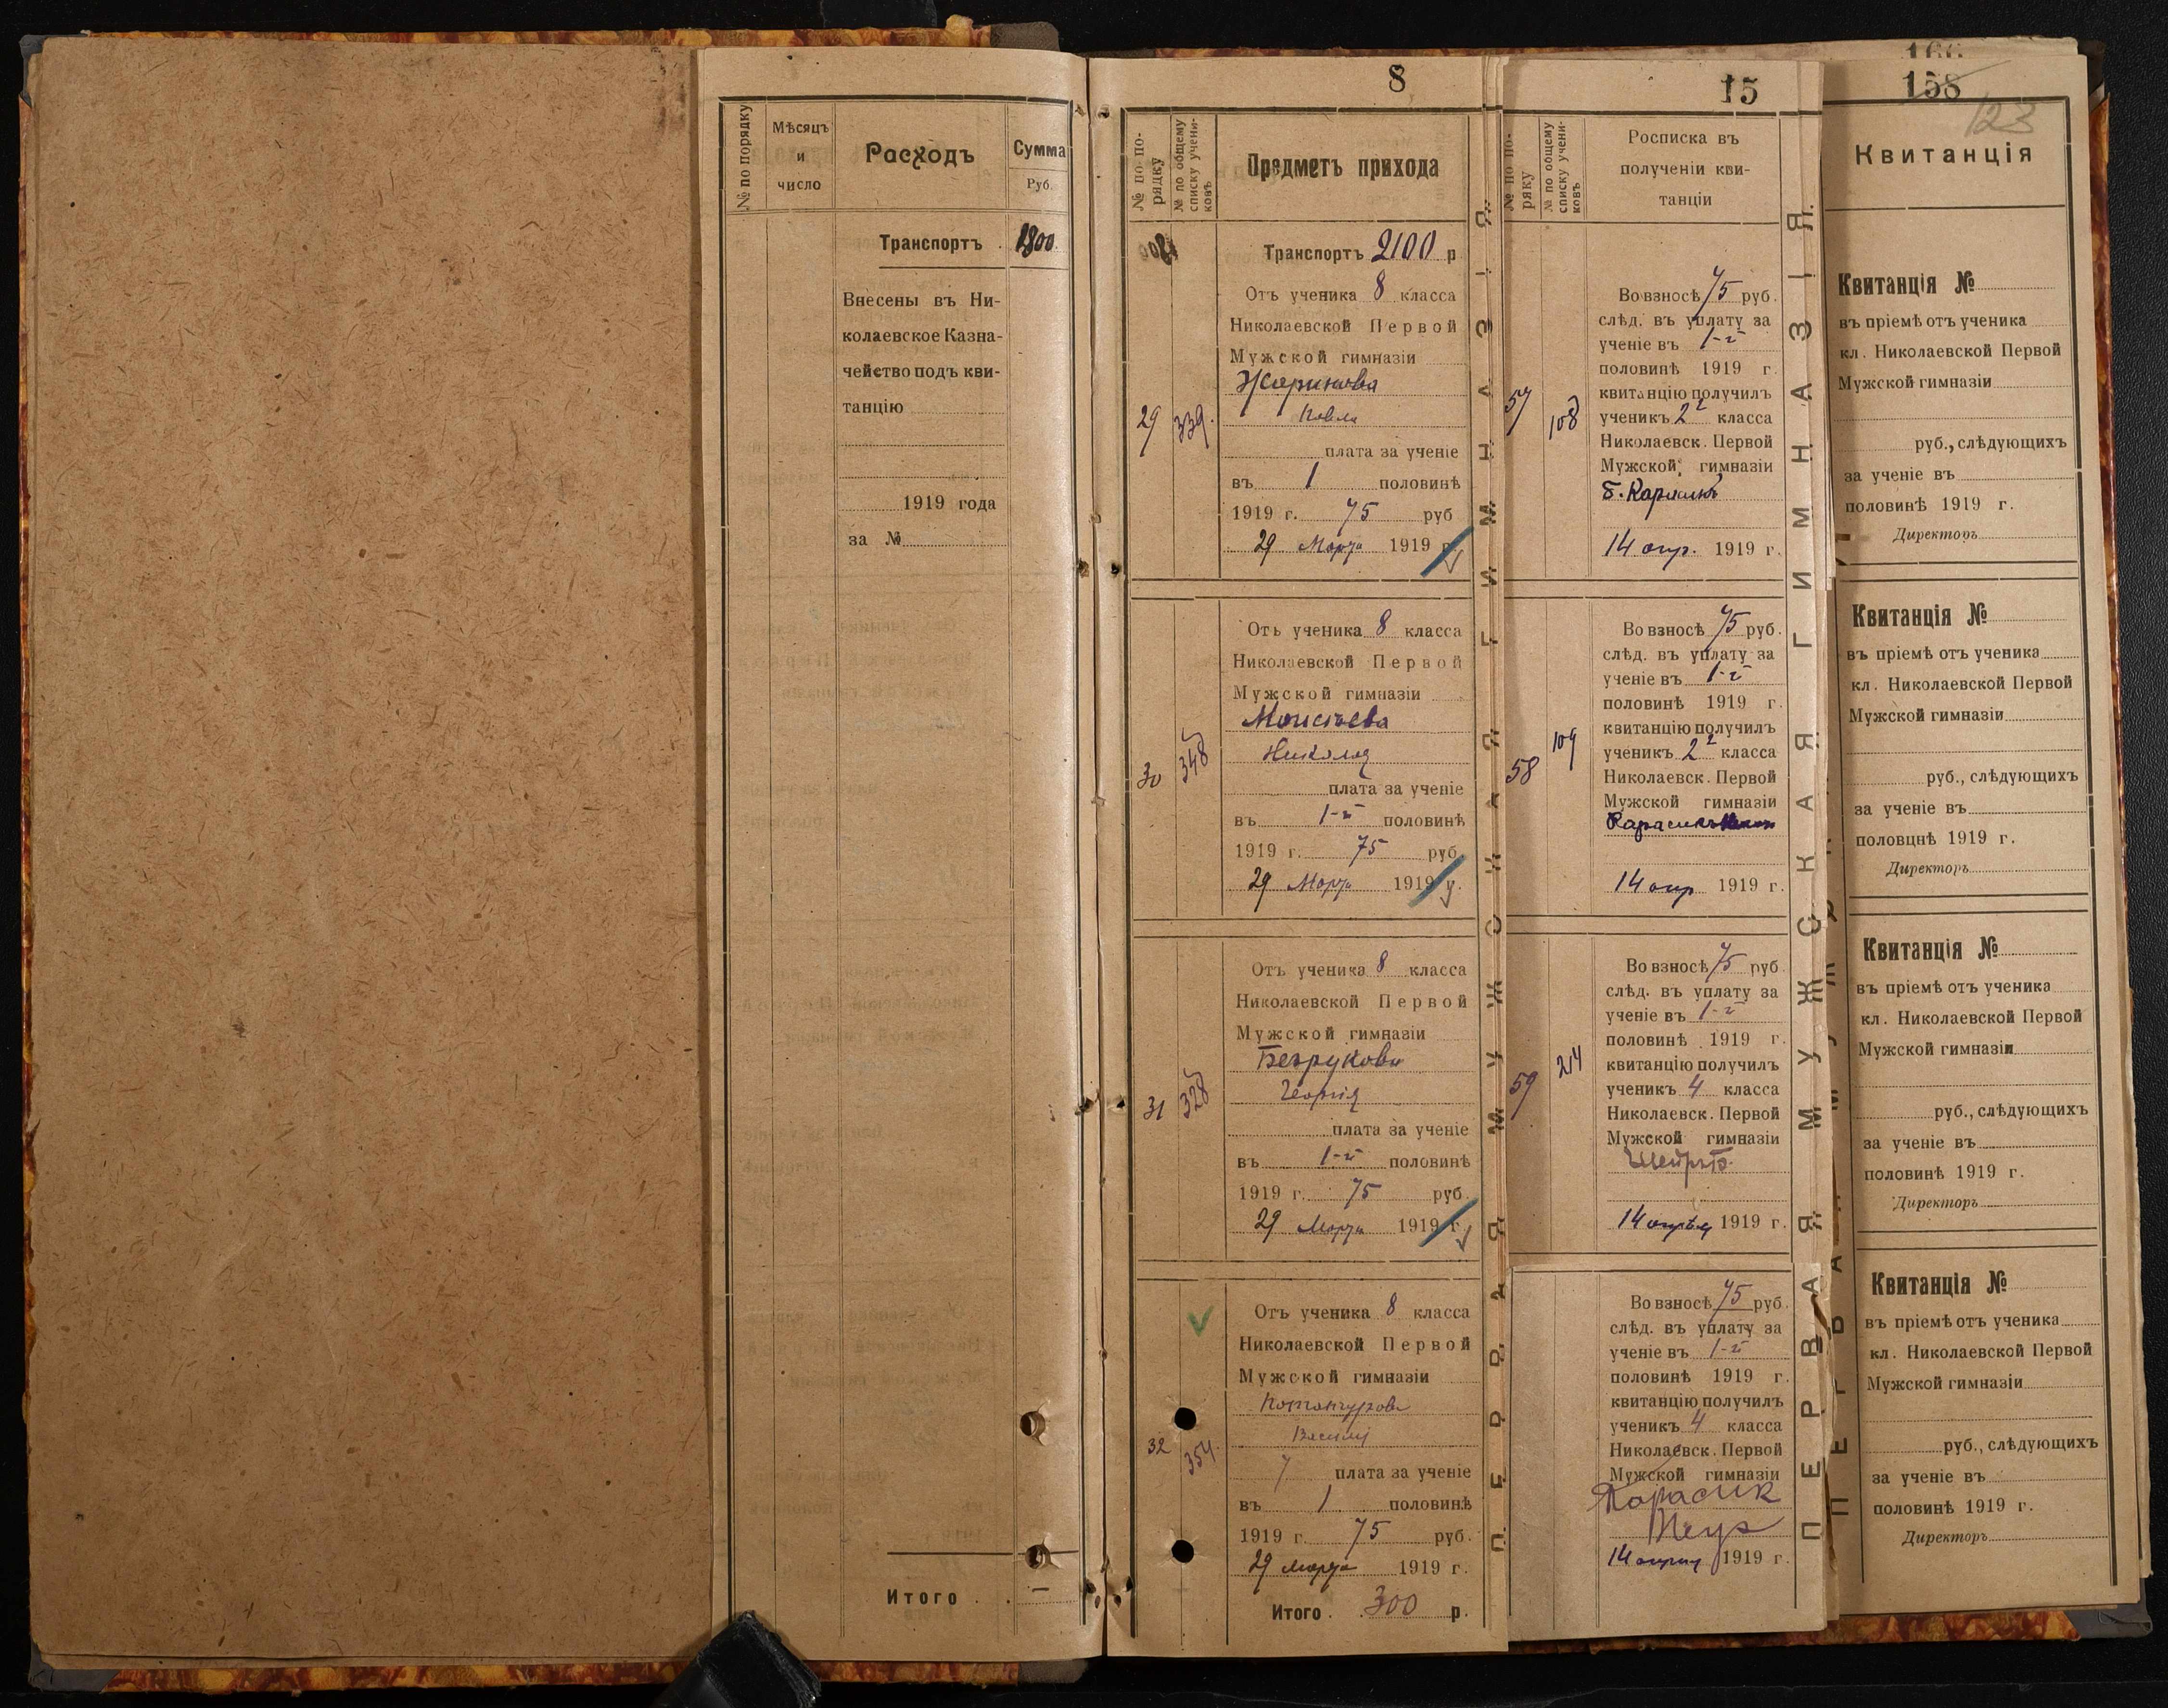 № по порядку
Мѣсяцъ
и
число
Расходъ
Сумма
Руб.
Транспортъ . 1800.
Внесены въ Ни-
колаевское Казна-
чейство подъ кви-
танцію
1919 года
за №
Итого . . —
8
№ по по-
рядку
№ по общему
списку учени-
ковъ
Предметъ прихода
Транспортъ 2100 р
29
339.
Отъ ученика 8 класса
Николаевской Первой
Мужской гимназіи
Павла
плата за ученіе
въ 1 половинѣ
1919 г. 75 руб
29 Марта 1919 г.
30
348
Отъ ученика 8 класса
Николаевской Первой
Мужской гимназіи
Моисѣева
Николая
плата за ученіе
въ 1-й половинѣ
1919 г. 75 руб.
29 Марта 1919 г.
31
328
Отъ ученика 8 класса
Николаевской Первой
Мужской гимназіи
Безрукова
Георгія
плата за ученіе
въ 1-й половинѣ
1919 г. 75 руб.
29 Марта 1919 г.
32
354.
Отъ ученика 8 класса
Николаевской Первой
Мужской гимназіи
Василія
плата за ученіе
въ 1 половинѣ
1919 г. 75 руб.
29 Марта 1919 г.
Итого . 300 р.
ПЕРВАЯ МУЖСКАЯ ГИМНАЗІЯ.
15
№ по по-
ряку
№ по общему
списку учени-
ковъ
Росписка въ
полученіи кви-
танціи
57
108
Во взносѣ 75 руб.
слѣд. въ уплату за
ученіе въ 1-й
половинѣ 1919 г.
квитанцію получилъ
ученикъ 2² класса
Николаевск. Первой
Мужской гимназіи
Б. Карасикъ
14 апр. 1919 г.
58
109
Во взносѣ 75 руб.
слѣд. въ уплату за
ученіе въ 1-й
половинѣ 1919 г.
квитанцію получилъ
ученикъ 2² класса
Николаевск. Первой
Мужской гимназіи
Карасикъ
14 апр 1919 г.
59
214
Во взносѣ 75 руб.
слѣд. въ уплату за
ученіе въ 1-й
половинѣ 1919 г.
квитанцію получилъ
ученикъ 4 класса
Николаевск. Первой
Мужской гимназіи
14 апрѣля 1919 г.
Во взносѣ 75 руб.
слѣд. въ уплату за
ученіе въ 1-й
половинѣ 1919 г.
квитанцію получилъ
ученикъ 4 класса
Николаевск. Первой
Мужской гимназіи
Карасик
14 апрля 1919 г.
ПЕРВАЯ МУЖСКАЯ ГИМНАЗІЯ.
166
158
123
Квитанція
Квитанція №
въ пріемѣ отъ ученика
кл. Николаевской Первой
Мужской гимназіи
руб., слѣдующихъ
за ученіе въ
половинѣ 1919 г.
Директоръ
Квитанція №
въ пріемѣ отъ ученика
кл. Николаевской Первой
Мужской гимназіи
руб., слѣдующихъ
за ученіе въ
половцнѣ 1919 г.
Директоръ
Квитанція №
въ пріемѣ отъ ученика
кл. Николаевской Первой
Мужской гимназіи
руб., слѣдующихъ
за ученіе въ
половинѣ 1919 г.
Директоръ
Квитанція №
въ пріемѣ отъ ученика
кл. Николаевской Первой
Мужской гимназіи
руб., слѣдующихъ
за ученіе въ
половинѣ 1919 г.
Директоръ